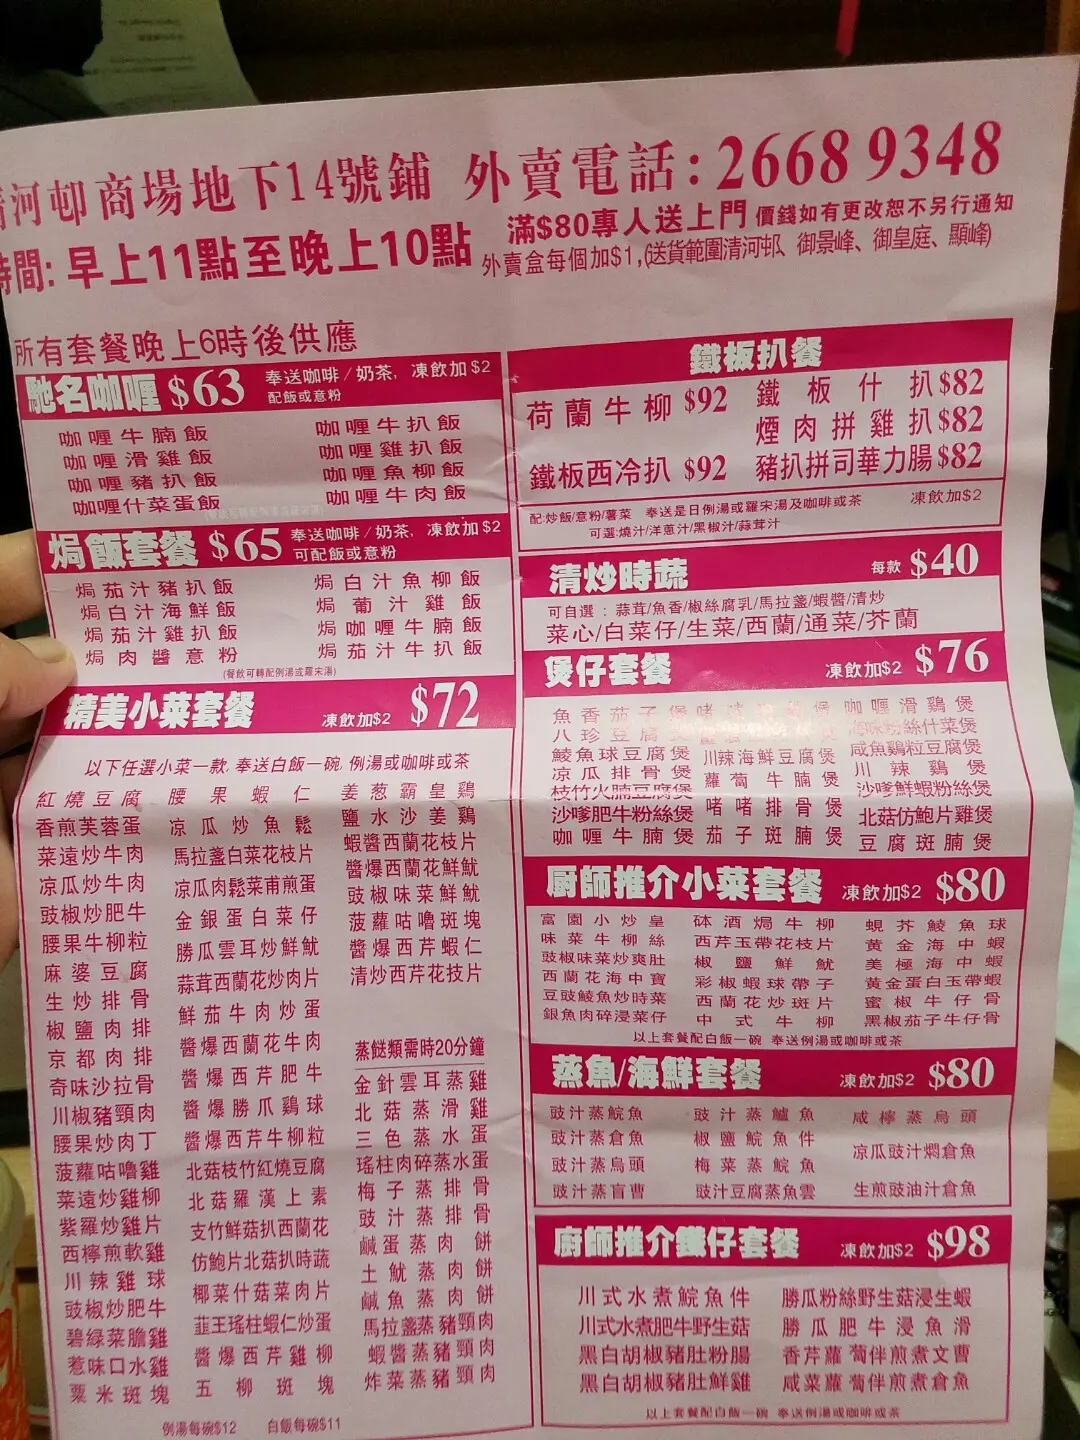 河邨商場地下14號鋪 外賣電話：2668 9348
時間: 早上11點至晚上10點
滿$80專人送上門 價錢如有更改恕不另行通知
外賣盒每個加$1,(送貨範圍清河邨、御景峰、御皇庭、顯峰)
所有套餐晚上6時後供應
馳名咖喱 $63 奉送咖啡/奶茶, 凍飲加$2
配飯或意粉
咖喱牛腩飯 咖喱牛扒飯
咖喱滑雞飯 咖喱雞扒飯
咖喱豬扒飯 咖喱魚柳飯
咖喱什菜蛋飯 咖喱牛肉飯
焗飯套餐 $65 奉送咖啡/奶茶, 凍飲加$2
可配飯或意粉
焗茄汁豬扒飯 焗白汁魚柳飯
焗白汁海鮮飯 焗葡汁雞飯
焗茄汁雞扒飯 焗咖喱牛腩飯
焗肉醬意粉 焗茄汁牛扒飯
(餐飲可轉配例湯或羅宋湯)
精美小菜套餐 凍飲加$2 $72
以下任選小菜一款, 奉送白飯一碗, 例湯或咖啡或茶
紅燒豆腐 腰果蝦仁 姜葱霸皇鷄
香煎芙蓉蛋 凉瓜炒魚鬆 鹽水沙姜鷄
菜遠炒牛肉 馬拉盞白菜花枝片 蝦醬西蘭花枝片
凉瓜炒牛肉 凉瓜肉鬆菜甫煎蛋 醬爆西蘭花鮮魷
豉椒炒肥牛 金銀蛋白菜仔 豉椒味菜鮮魷
腰果牛柳粒 勝瓜雲耳炒鮮魷 菠蘿咕嚕斑塊
麻婆豆腐 蒜茸西蘭花炒肉片 醬爆西芹蝦仁
生炒排骨 鮮茄牛肉炒蛋 清炒西芹花技片
椒鹽肉排 醬爆西蘭花牛肉
京都肉排 醬爆西芹肥牛 蒸餸類需時20分鐘
奇味沙拉骨 醬爆勝瓜鷄球 金針雲耳蒸雞
川椒豬頸肉 醬爆西芹牛柳粒 北菇蒸滑雞
腰果炒肉丁 北菇枝竹紅燒豆腐 三色蒸水蛋
菠蘿咕嚕雞 北菇羅漢上素 瑤柱肉碎蒸水蛋
菜遠炒雞柳 支竹鮮菇扒西蘭花 梅子蒸排骨
紫羅炒雞片 仿鮑片北菇扒時蔬 豉汁蒸排骨
西檸煎軟雞 椰菜什菇菜肉片 鹹蛋蒸肉餅
川辣雞球 韮王瑤柱蝦仁炒蛋 土魷蒸肉餅
豉椒炒肥牛 醬爆西芹雞柳 鹹魚蒸肉餅
碧綠菜膽雞 五柳斑塊 馬拉盞蒸豬頸肉
惹味口水雞 蝦醬蒸豬頸肉
粟米斑塊 炸菜蒸豬頸肉
例湯每碗$12 白飯每碗$11
鐵板扒餐
荷蘭牛柳 $92 鐵板什扒 $82
煙肉拼雞扒 $82
鐵板西冷扒 $92 豬扒拼司華力腸 $82
配:炒飯/意粉/薯菜 奉送是日例湯或羅宋湯及咖啡或茶 凍飲加$2
可選:燒汁/洋蔥汁/黑椒汁/蒜茸汁
清炒時蔬 每款 $40
可自選：蒜茸/魚香/椒絲腐乳/馬拉盞/蝦醬/清炒
菜心/白菜仔/生菜/西蘭/通菜/芥蘭
煲仔套餐 凍飲加$2 $76
魚香茄子煲 咖喱滑鷄煲
八珍豆腐煲 海味粉絲什菜煲
鯪魚球豆腐煲 川辣海鮮豆腐煲 咸魚鷄粒豆腐煲
凉瓜排骨煲 蘿蔔牛腩煲 川辣鷄煲
枝竹火腩豆腐煲 沙嗲鮮蝦粉絲煲
沙嗲肥牛粉絲煲 啫啫排骨煲 北菇仿鮑片雞煲
咖喱牛腩煲 茄子斑腩煲 豆腐斑腩煲
廚師推介小菜套餐 凍飲加$2 $80
富園小炒皇 砵酒焗牛柳 蜆芥鯪魚球
味菜牛柳絲 西芹玉帶花枝片 黃金海中蝦
豉椒味菜炒爽肚 椒鹽鮮魷 美極海中蝦
西蘭花海中寶 彩椒蝦球帶子 黃金蛋白玉帶蝦
豆豉鯪魚炒時菜 西蘭花炒斑片 蜜椒牛仔骨
銀魚肉碎浸菜仔 中式牛柳 黑椒茄子牛仔骨
以上套餐配白飯一碗 奉送例湯或咖啡或茶
蒸魚/海鮮套餐 凍飲加$2 $80
豉汁蒸鯇魚 豉汁蒸鱸魚 咸檸蒸烏頭
豉汁蒸倉魚 椒鹽鯇魚件
凉瓜豉汁燜倉魚
豉汁蒸烏頭 梅菜蒸鯇魚
豉汁蒸盲曹 豉汁豆腐蒸魚雲 生煎豉油汁倉魚
廚師推介鐵仔套餐 凍飲加$2 $98
川式水煮鯇魚件 勝瓜粉絲野生菇浸生蝦
川式水煮肥牛野生菇 勝瓜肥牛浸魚滑
黑白胡椒豬肚粉腸 香芹蘿蔔伴煎煮文曹
黑白胡椒豬肚鮮雞 咸菜蘿蔔伴煎煮倉魚
以上套餐配白飯一碗 奉送例湯或咖啡或茶